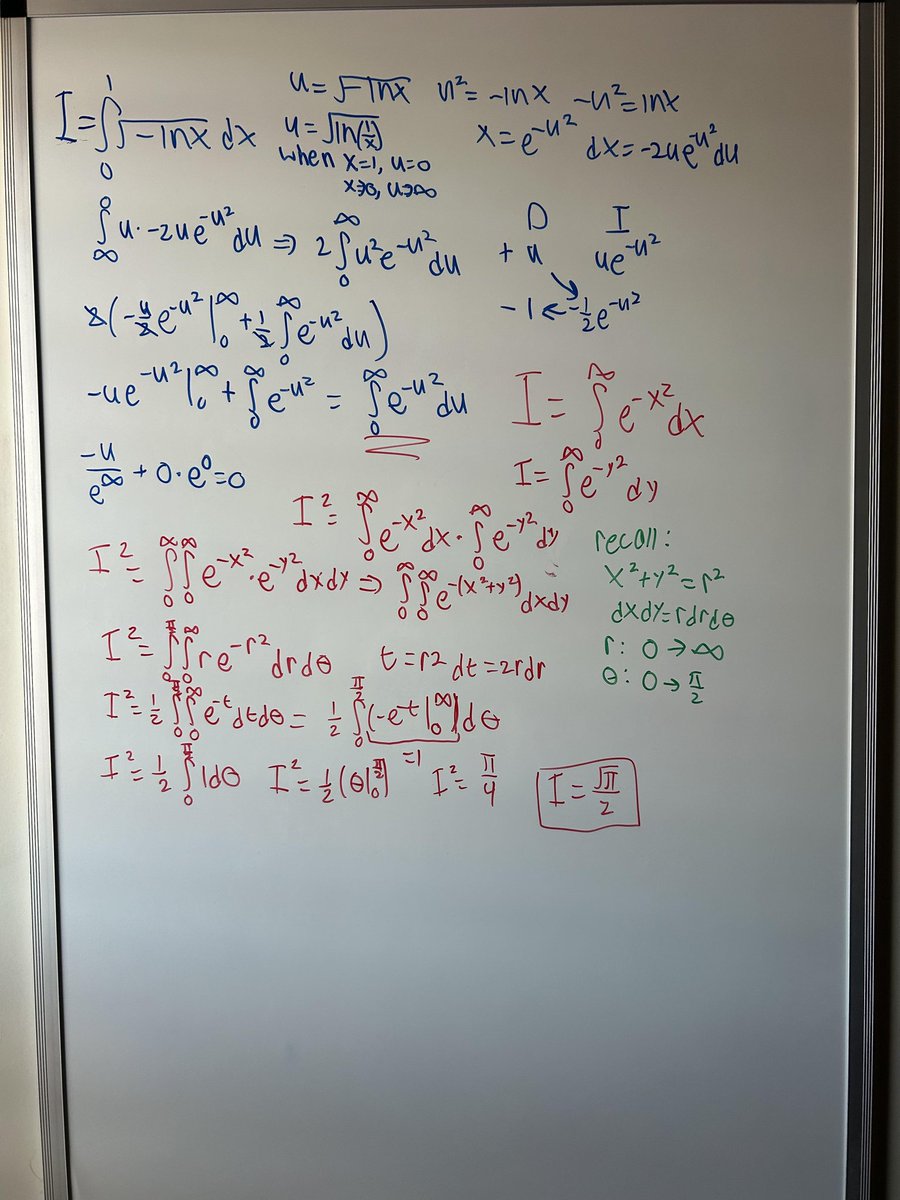 I = ∫₀¹ √-lnx dx
u = √-lnx u² = -lnx -u² = lnx
u = √ln(1/x) x = e^-u² dx = -2ue^-u² du
when x=1, u=0
x→0, u→∞
∫_∞^0 u · -2ue^-u² du ⇒ 2∫₀^∞ u²e^-u² du
D I
+ u ue^-u²
- 1 ← -1/2 e^-u²
2(-u/2 e^-u² |₀^∞ + 1/2 ∫₀^∞ e^-u² du)
-ue^-u² |₀^∞ + ∫₀^∞ e^-u² = ∫₀^∞ e^-u² du
-u/e^∞ + 0·e⁰ = 0
I = ∫₀^∞ e^-x² dx
I = ∫₀^∞ e^-y² dy
I² = ∫₀^∞ e^-x² dx · ∫₀^∞ e^-y² dy
I² = ∫₀^∞ ∫₀^∞ e^-x² · e^-y² dxdy ⇒ ∫₀^∞ ∫₀^∞ e^-(x²+y²) dxdy
recall:
x²+y²=r²
dxdy=rdrdθ
r: 0→∞
θ: 0→π/2
I² = ∫₀^π/2 ∫₀^∞ re^-r² drdθ t=r² dt=2rdr
I² = 1/2 ∫₀^π/2 ∫₀^∞ e^-t dtdθ = 1/2 ∫₀^π/2 (-e^-t |₀^∞) dθ
=1
I² = 1/2 ∫₀^π/2 1dθ I² = 1/2 (θ|₀^π/2) I² = π/4
I = √π/2